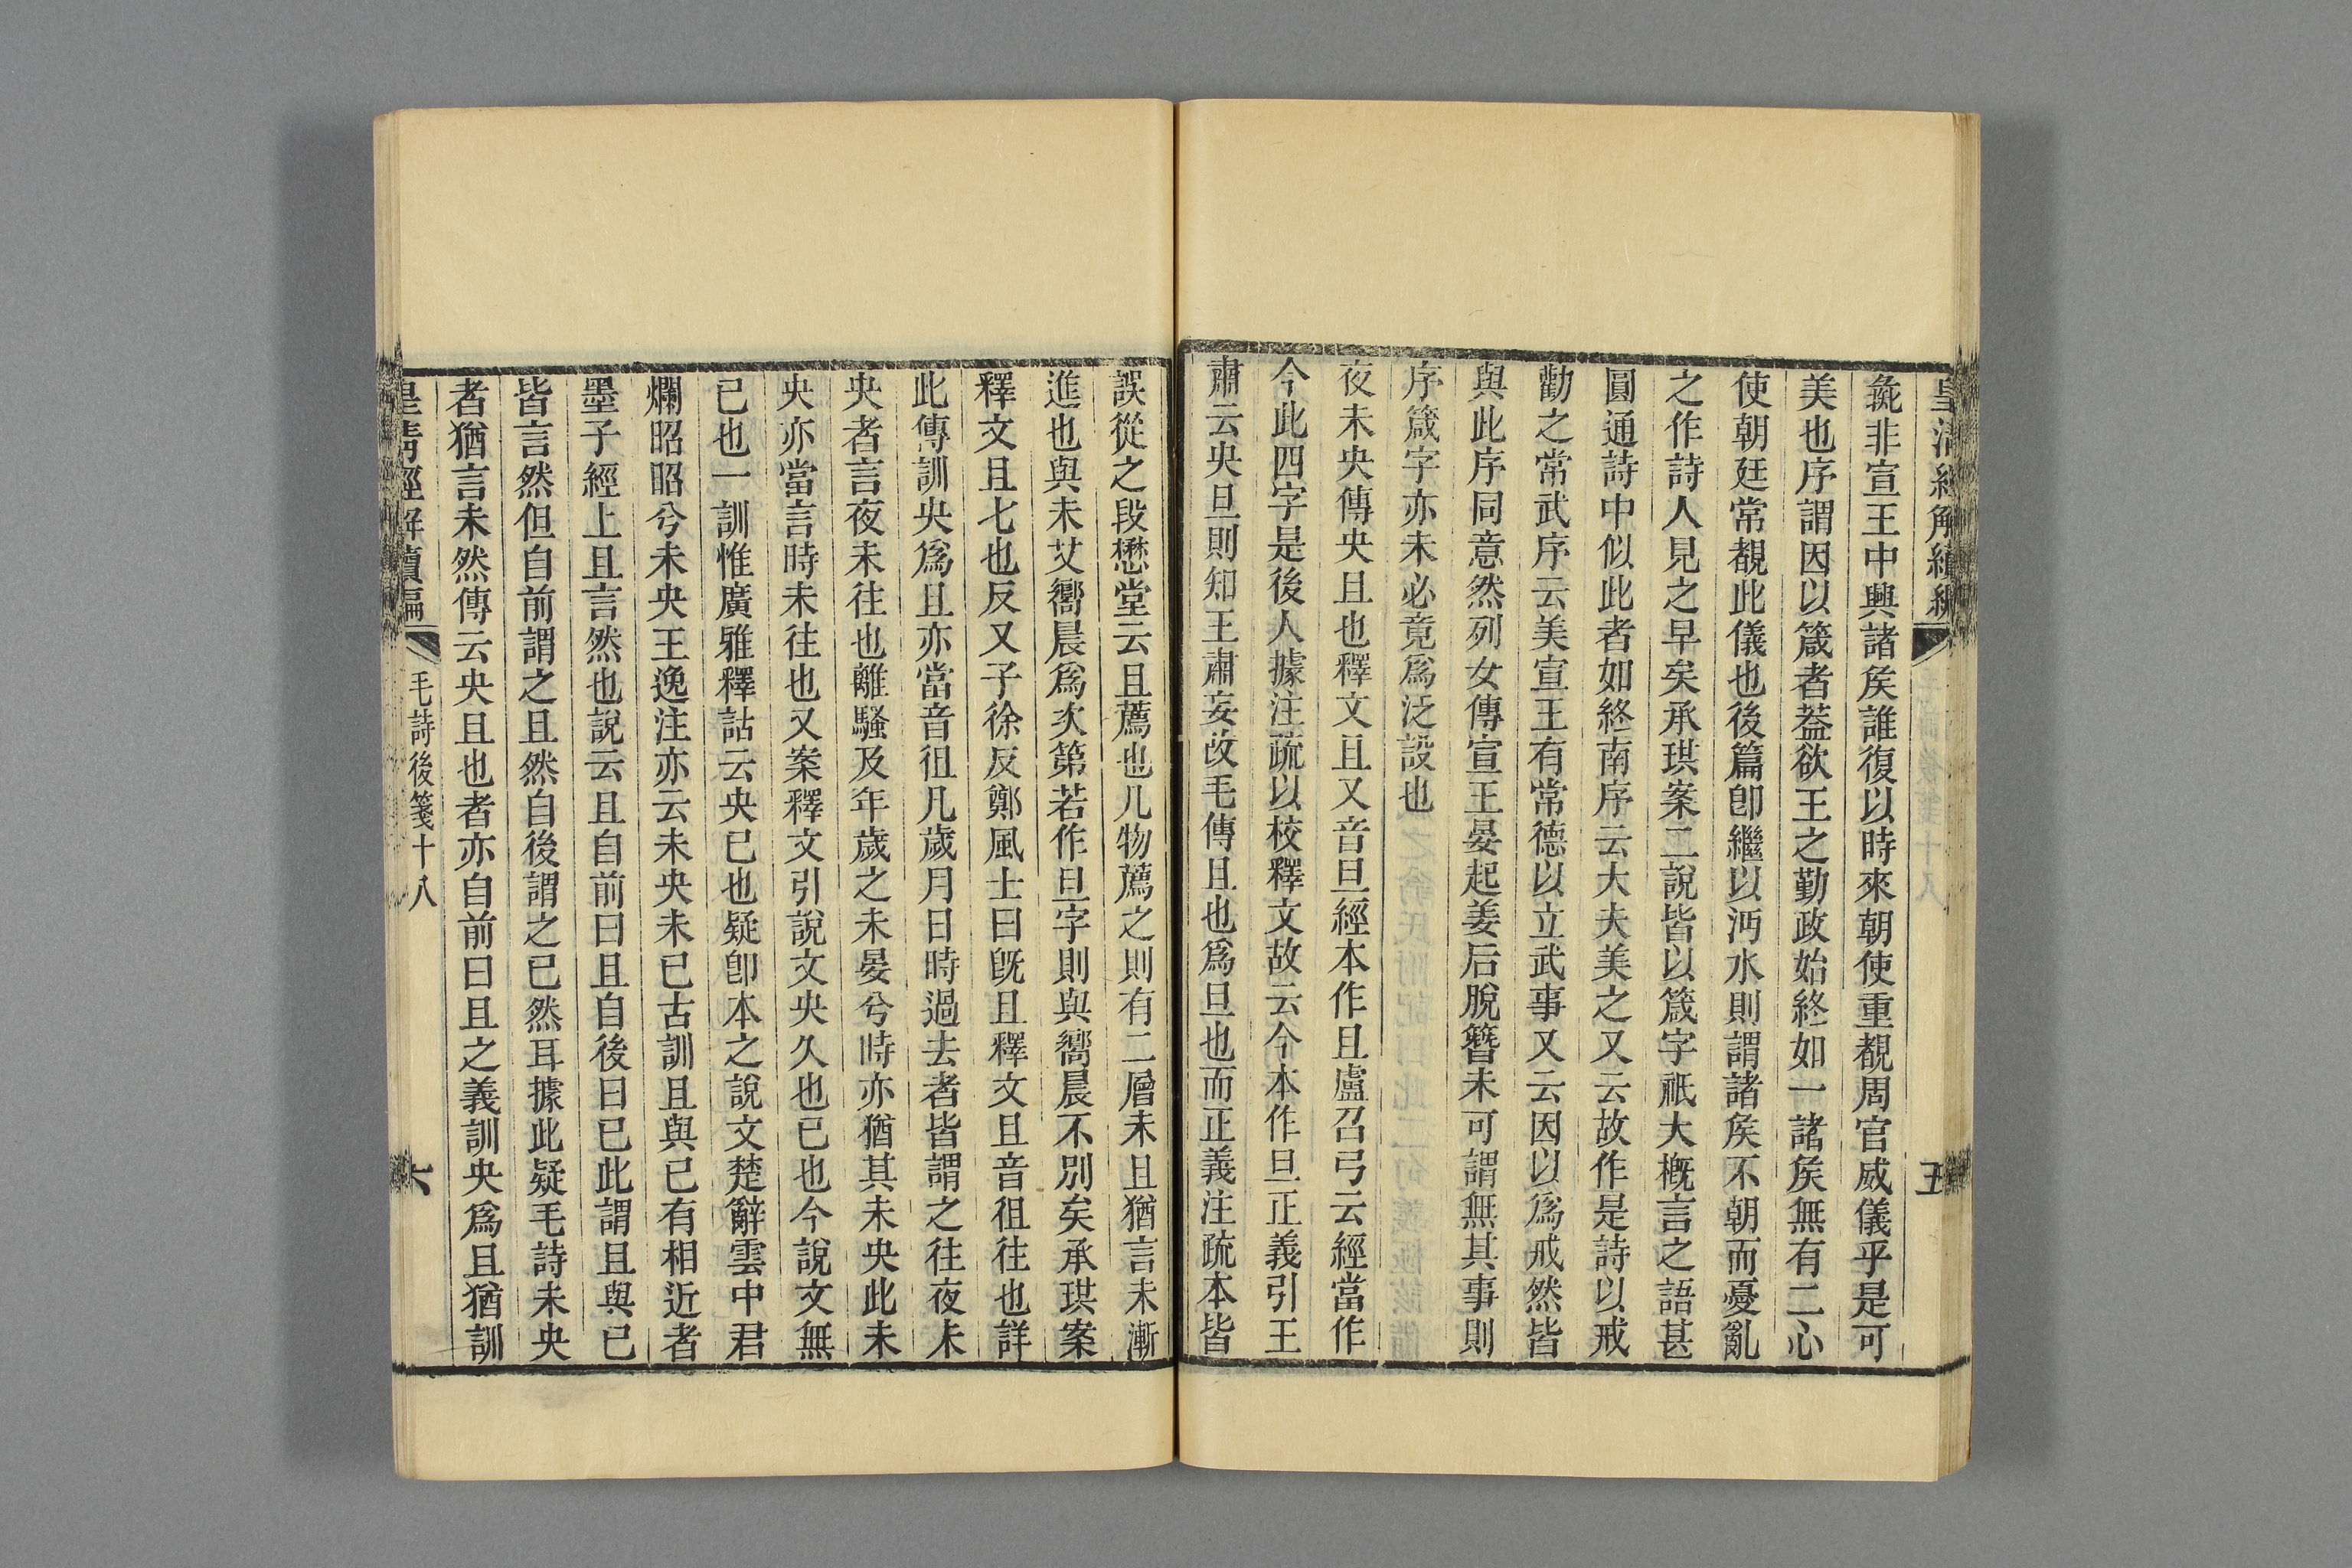 皇清經解續編
五
毿非宣王中興諸矦誰復以時來朝使重覩周官威儀乎是可
美也序謂因以箴者葢欲王之勤政始終如一諸矦無有二心
使朝廷常覩此儀也後篇卽繼以沔水則謂諸矦不朝而憂亂
之作詩人見之早矣承珙案二說皆以箴字祇大概言之語甚
圓通詩中似此者如終南序云大夫美之又云故作是詩以戒
勸之常武序云美宣王有常德以立武事又云因以爲戒然皆
與此序同意然列女傳宣王晏起姜后脫簪未可謂無其事則
序箴字亦未必竟爲泛設也
夜未央傳央且也釋文且又音旦經本作且盧召弓云經當作
今此四字是後人據注疏以校釋文故云今本作旦正義引王
肅云央旦則知王肅妄改毛傳且也爲旦也而正義注疏本皆
誤從之段懋堂云且薦也凡物薦之則有二層未且猶言未漸
進也與未艾嚮晨爲次第若作旦字則與嚮晨不別矣承珙案
釋文且七也反又子徐反鄭風士曰旣且釋文且音徂往也詳
此傳訓央爲且亦當音徂凡歲月日時過去者皆謂之往夜未
央者言夜未往也離騷及年歲之未晏兮時亦猶其未央此未
央亦當言時未往也又案釋文引說文央久也已也今說文無
已也一訓惟廣雅釋詁云央已也疑卽本之說文楚辭雲中君
爛昭昭兮未央王逸注亦云未央未已古訓且與已有相近者
墨子經上且言然也說云且自前曰且自後曰已此謂且與已
皆言然但自前謂之且然自後謂之已然耳據此疑毛詩未央
者猶言未然傳云央且也者亦自前曰且之義訓央爲且猶訓
皇清經解續編
毛詩後箋十八
六